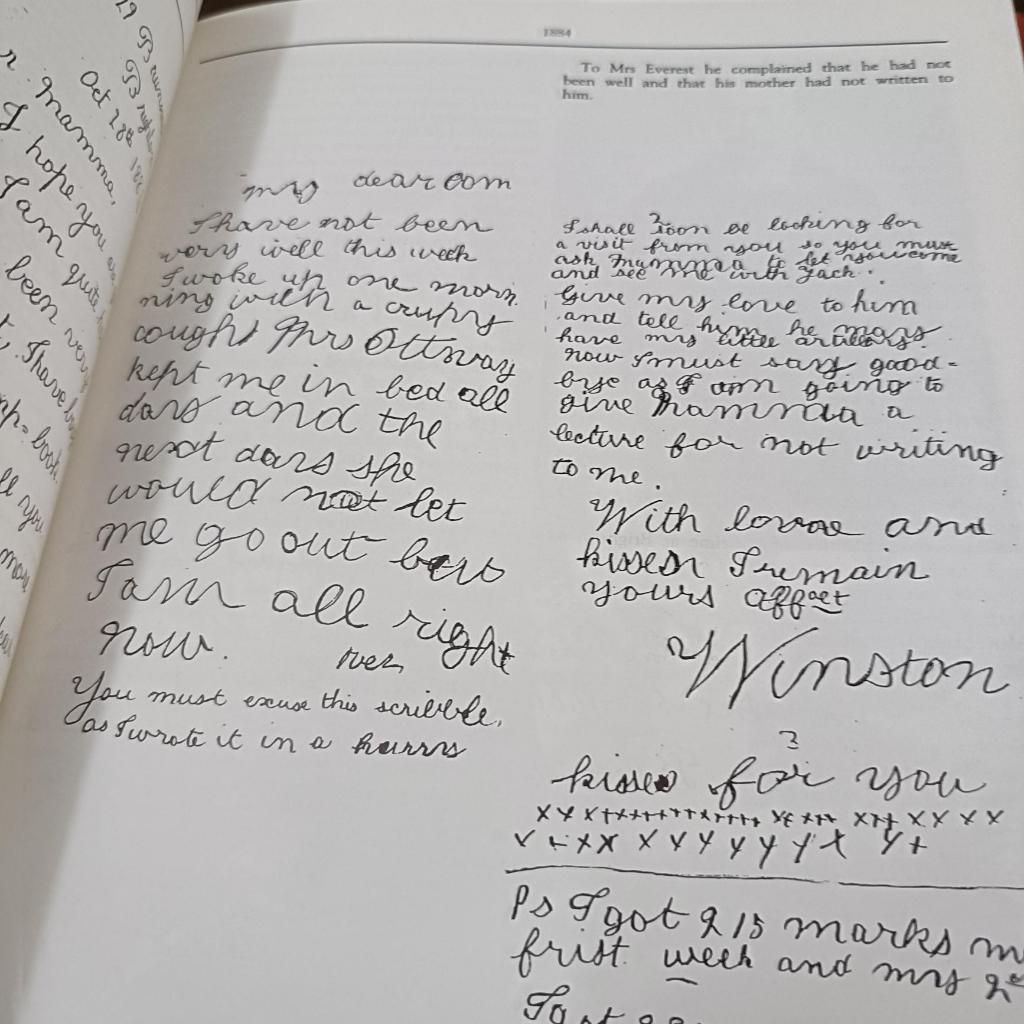 29 Brunsw
Brighton
Oct 28th 188
r mamma,
I hope you
I am quite
been very
I have
book.
ll you
1884
To Mrs Everest he complained that he had not
been well and that his mother had not written to
him.
my dear oom
I have not been
very well this week
I woke up one morn
ning with a crupy
cought Mrs Ottway
kept me in bed all
day and the
next day she
would not let
me go out but
I am all right
now.
You must excuse this scribble,
as I wrote it in a hurry
I shall soon be looking for
a visit from you so you must
ask Mamma to let you come
and see me with Jack.
Give my love to him
and tell him he may
have my little artillery.
now I must say good-
bye as I am going to
give Mamma a
lecture for not writing
to me.
With love and
kisses I remain
yours affaet
Winston
kisses for you
x x x x x x x x x x x x x x x x x x x x x x x x x
x x x x x x x x x x x x x x
Ps I got 215 marks m
frist week and my 2
I got